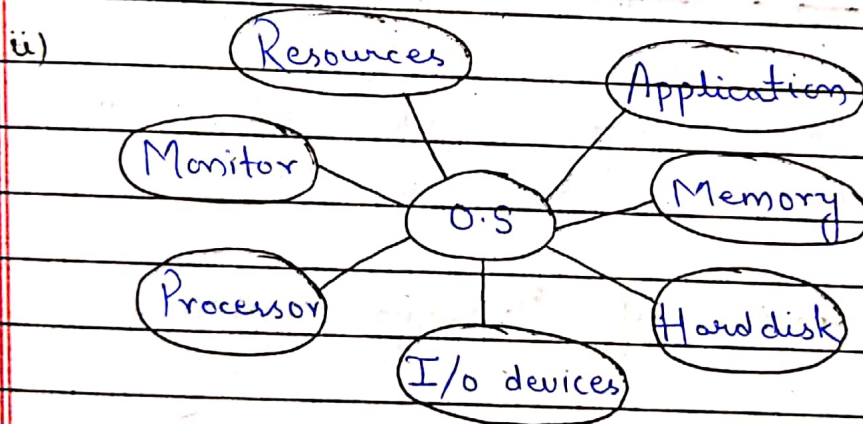 ii)
Resources
Application
Monitor
Memory
O.S
Processor
Hard disk
I/o devices